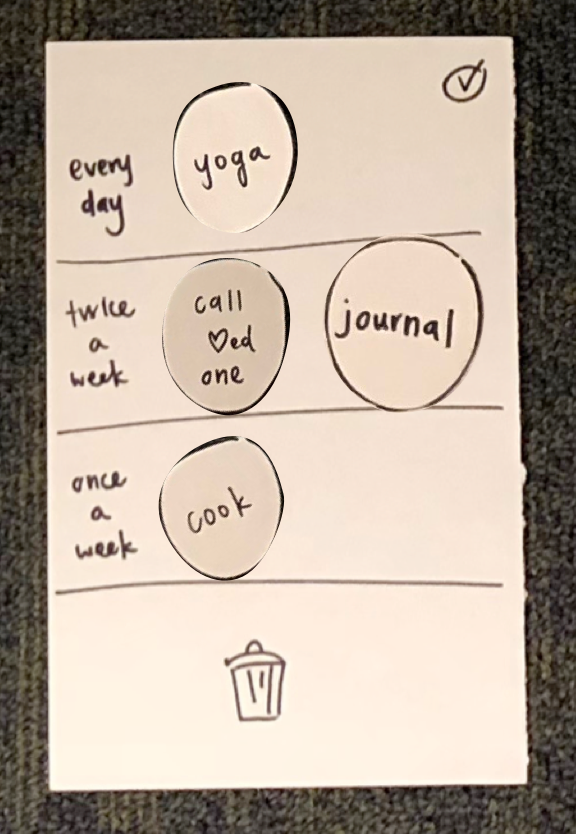 every
day
yoga
twice
a
week
call
♡ed
one
journal
once
a
week
cook